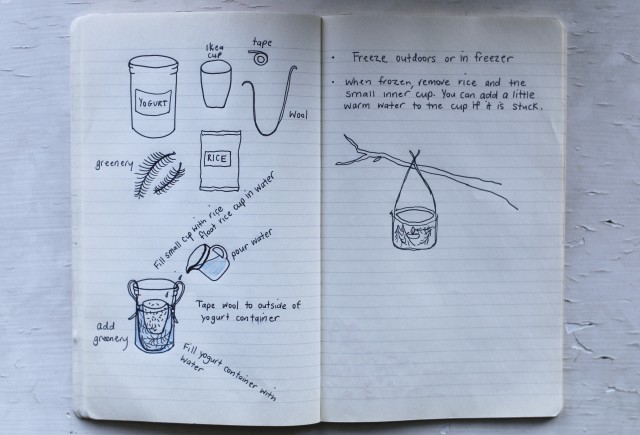 Ikea
cup
tape
YOGURT
Wool
greenery
RICE
Fill small cup with rice
float rice cup in water
pour water
Tape wool to outside of
yogurt container
add
greenery
Fill yogurt container with
water
• Freeze outdoors or in freezer
• When frozen, remove rice and the
small inner cup. You can add a little
warm water to the cup if it is stuck.